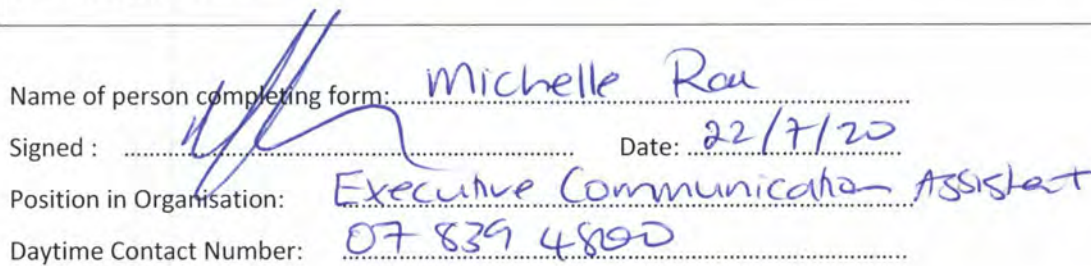 Name of person completing form: Michelle Rau
Signed : Date: 22/7/20
Position in Organisation: Executive Communication Assistant
Daytime Contact Number: 07 839 4800